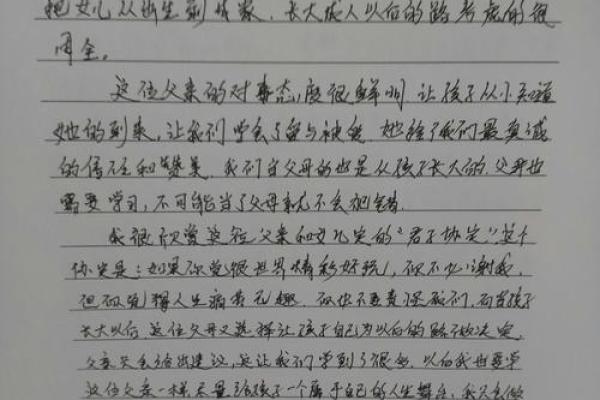 把女儿从出生到成家、长大成人以后的路考虑的很
周全。
这位父亲的对事态度很鲜明,让孩子从小知道
她的到来,让我们学会了爱与被爱。她给了我们最真诚
的信任和赞美。我们当父母的也是从孩子长大的,父母也
需要学习,不可能当了父母就不会犯错。
我很欣赏这位父亲和女儿定的“君子协定”。这个
协定是:如果你觉得世界精彩好玩,你不必谢我,
但你觉得人生痛苦无趣,你也不要责怪我们,而当孩子
长大以后,这位父母又选择让孩子自己为以后的路做决定,
父亲只会给出建议,这让我们学到了很多,以后我也要学
这位父亲一样尽量给孩子一个属于自己的人生舞台,我只会做